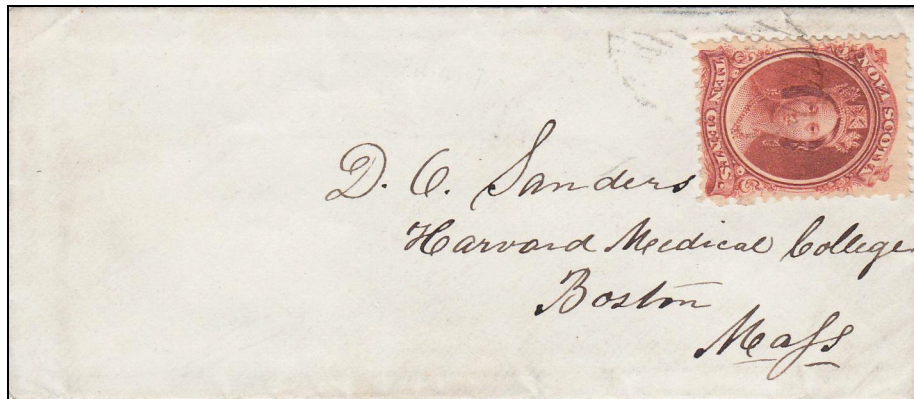 NOVA SCOTIA
TEN CENTS
D. C. Sanders
Harvard Medical College
Boston
Maſs